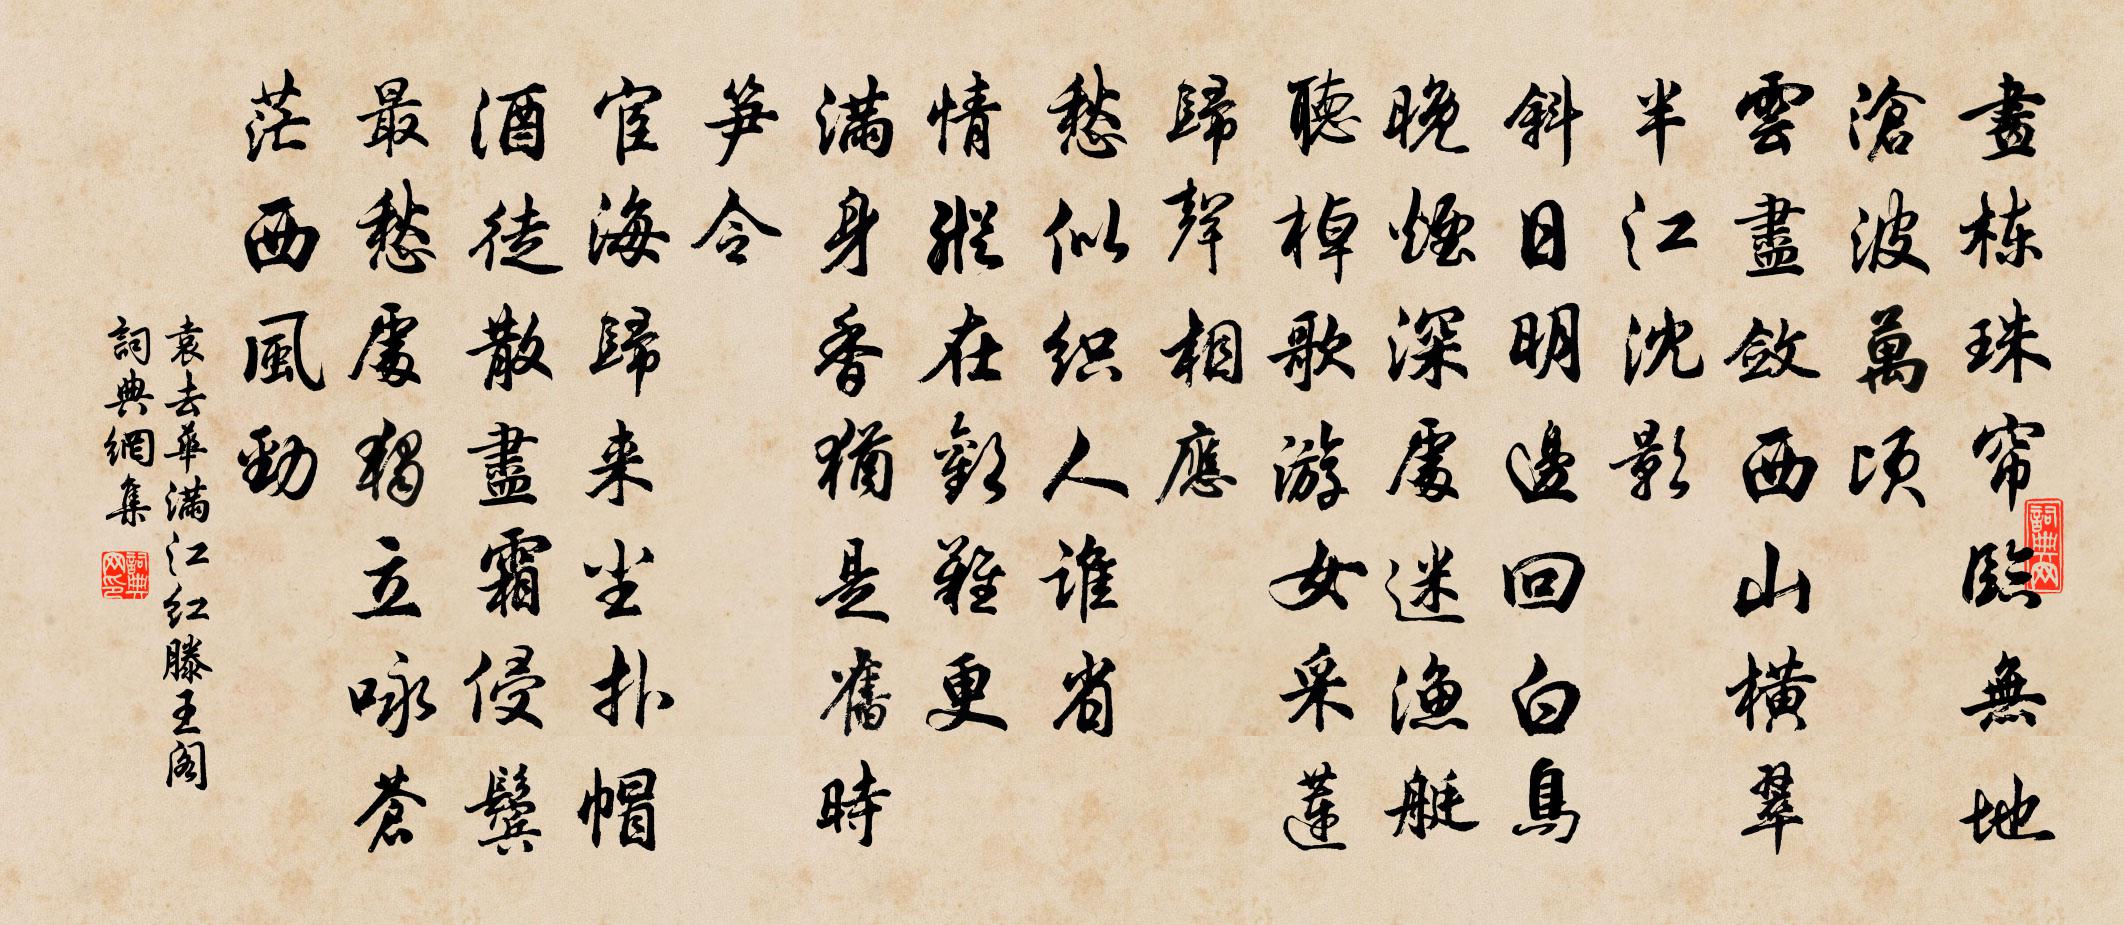 畫栋珠帘臨無地
滄波萬頃
雲盡斂西山橫翠
半江沈影
斜日明邊回白鳥
晚煙深處迷漁艇
聽棹歌游女采蓮
歸聲相應
愁似织人谁省
情縱在歡難更
滿身香猶是舊時
笋令
宦海歸来尘扑帽
酒徒散盡霜侵鬓
最愁處獨立咏蒼
茫西風勁
袁去華滿江红滕王阁
詞典網集
詞典网
詞典网印